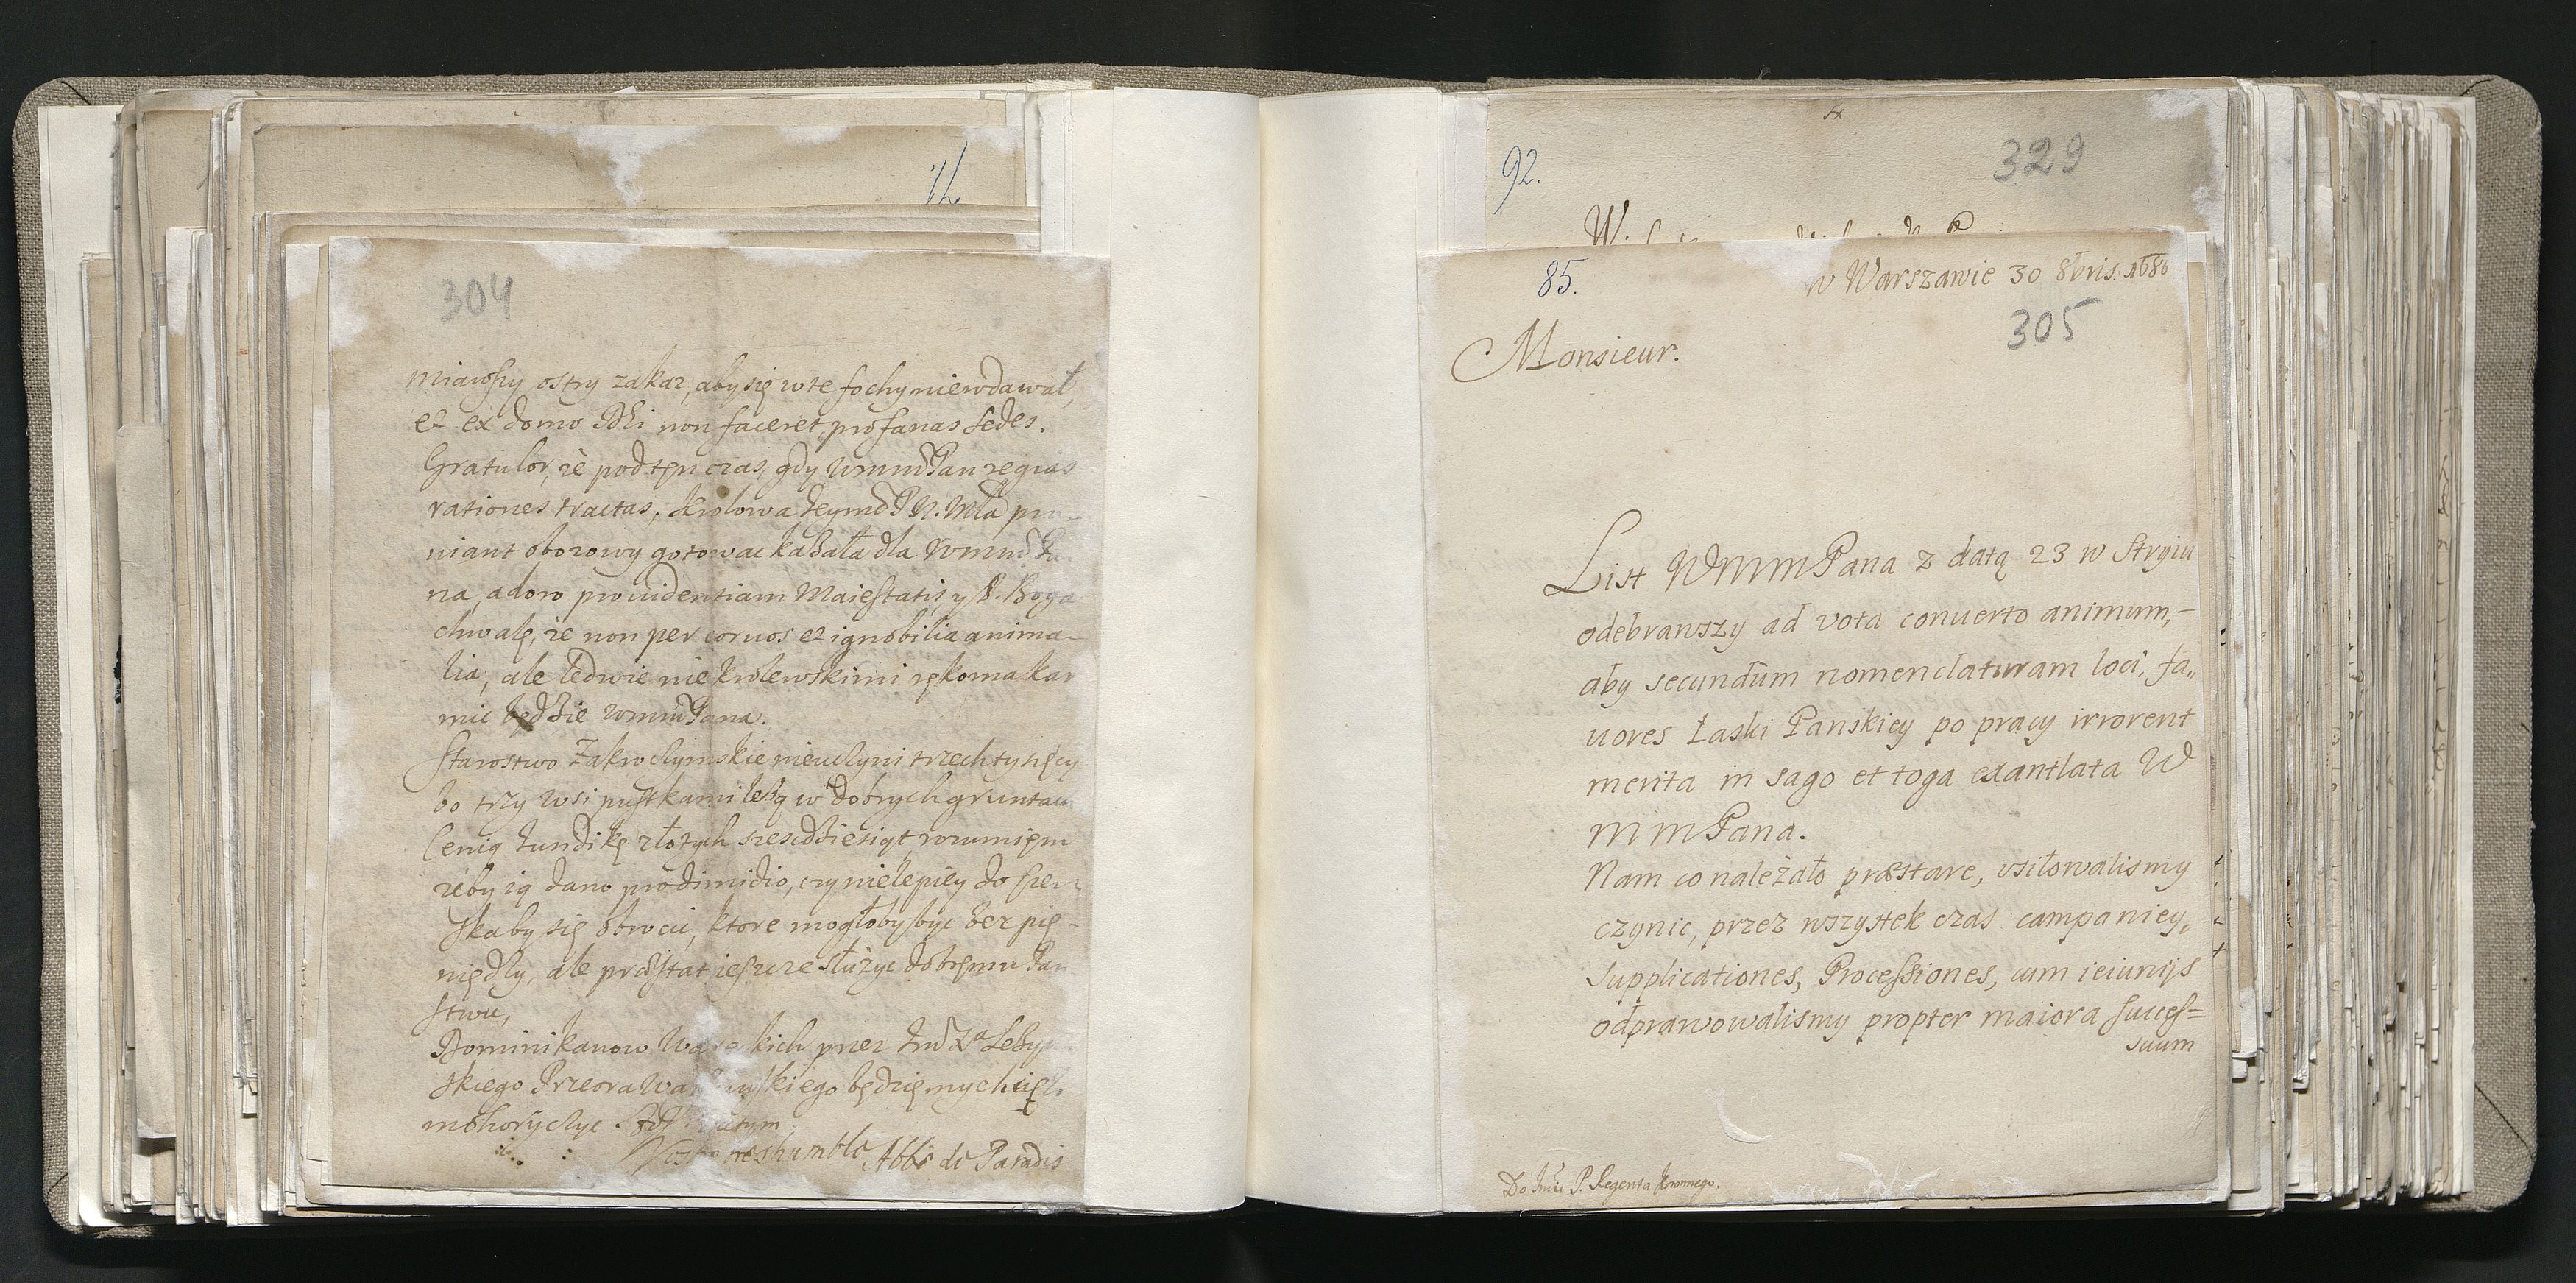 304
miawszy ostry zakaz, aby się w te fochy niewdawał,
et ex domo Dei non faceret profanas sedes.
Gratulor, że pod tęn czas, gdy WmmPan regias
rationes tractas, Krolowa Jeymć P. N. Młã pro-
niant oborowy gotować kazała dla Wmmć Pa-
na, adoro prouidentiam Maiestatis, y P. Boga
chwalę, że non per coruos et ignobilia anima-
lia, ale ledwie nie krolewskimi rękoma kar
mić będzie WmmPana.
Starostwo Zakroczymskie nieuczyni trzech tysięcy
bo trzy wsi pustkami leżą w dobrych gruntach
Cenią Jundikę złotych sześćdziesiąt, rozumięm
żeby ią dano pro dimidio, czy nie lepiey do
by się obrocić, ktore mogłoby być bez pię-
niędzy, ale præstat ieszcze służyć dobręmu Pań
stwu,
Dominikanow przez Jmć Xa
skiego Przeora będzięmy chcięli
mohoryczyć.
tres humble Abbé de Paradis
71.
92.
329
85.
w Warszawie 30 8bris. 1686
305
Monsieur.
List WMmPana z datą 23 w Stryiu
odebrawszy ad vota conuerto animum,-
aby secundum nomenclaturam loci, fa„
uores Łaski Panskiey po pracy irrorent
merita in sago et toga exantlata W
MmPana.
Nam co należało præstare, vsiłowalismy
czynic, przez wszystek czas campaniey,
Supplicationes, Processiones, cum ieiunijs
odprawowalismy propter maiora succes=
suum
Do Jmci P. Regenta Koronnego.